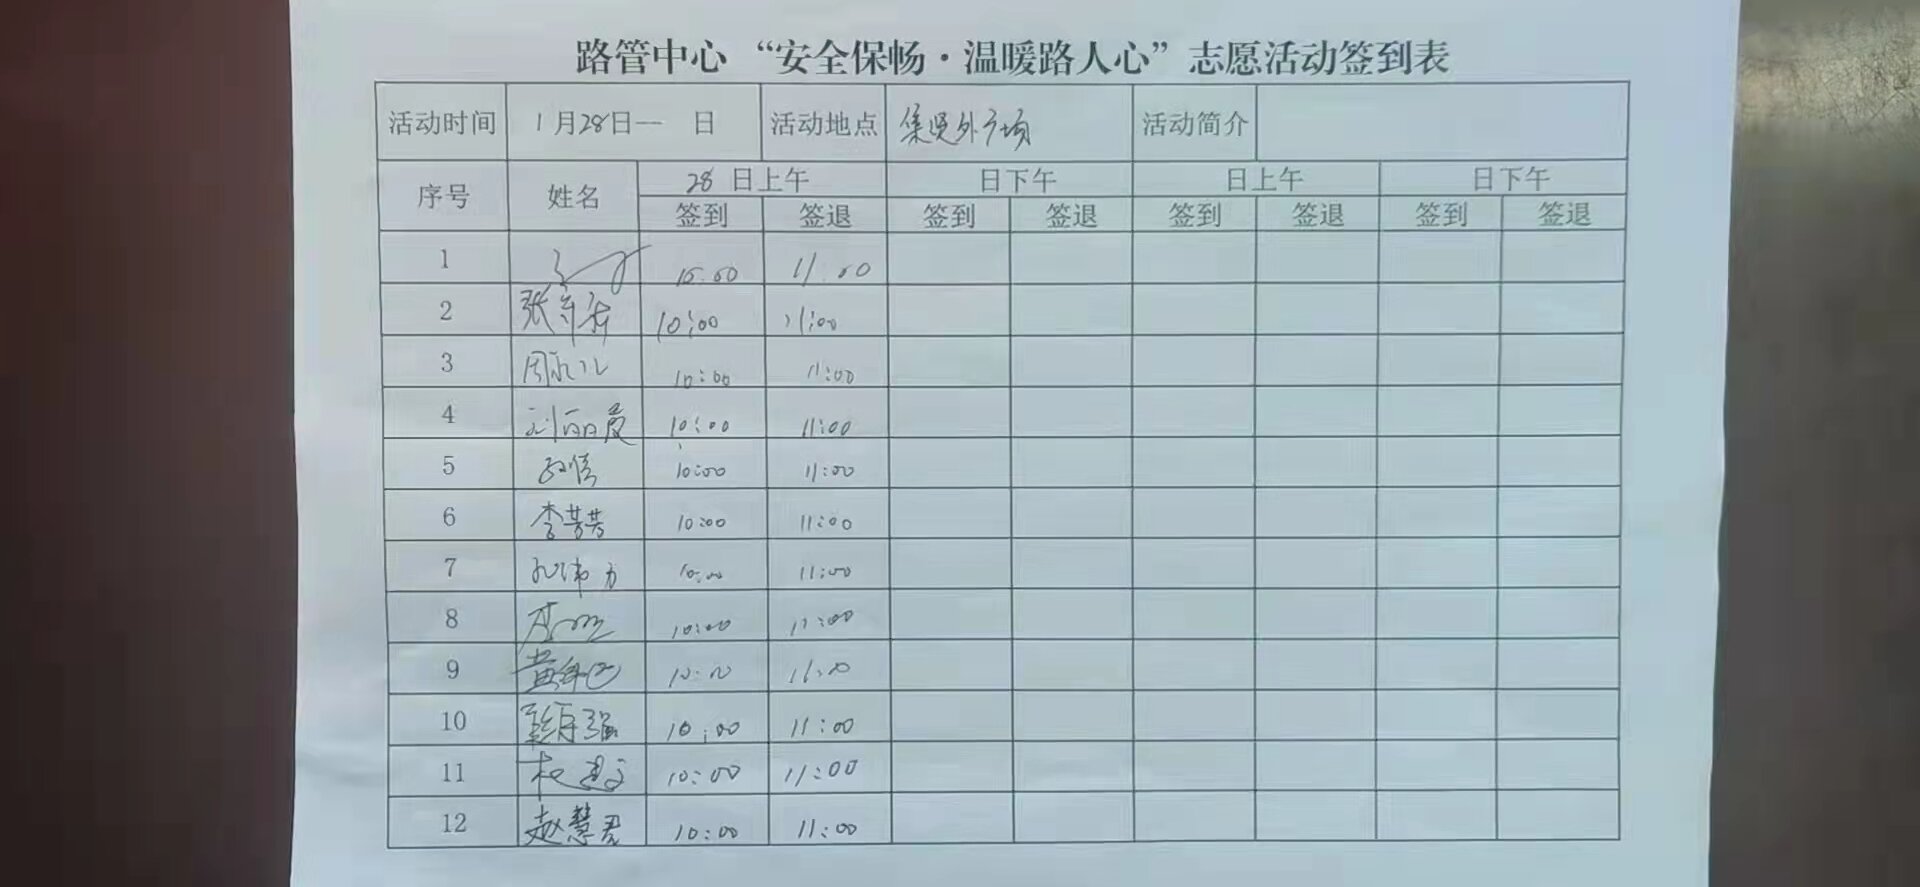 路管中心 “安全保畅·温暖路人心” 志愿活动签到表
活动时间 1月28日— 日 活动地点 集贤外广场 活动简介
序号 姓名 28日上午 日下午 日上午 日下午
签到 签退 签到 签退 签到 签退 签到 签退
1 10:00 11:00
2 张 10:00 11:00
3 周 10:00 11:00
4 刘丽霞 10:00 11:00
5 10:00 11:00
6 李芳芳 10:00 11:00
7 10:00 11:00
8 10:00 11:00
9 黄 10:00 11:00
10 强 10:00 11:00
11 10:00 11:00
12 赵慧君 10:00 11:00